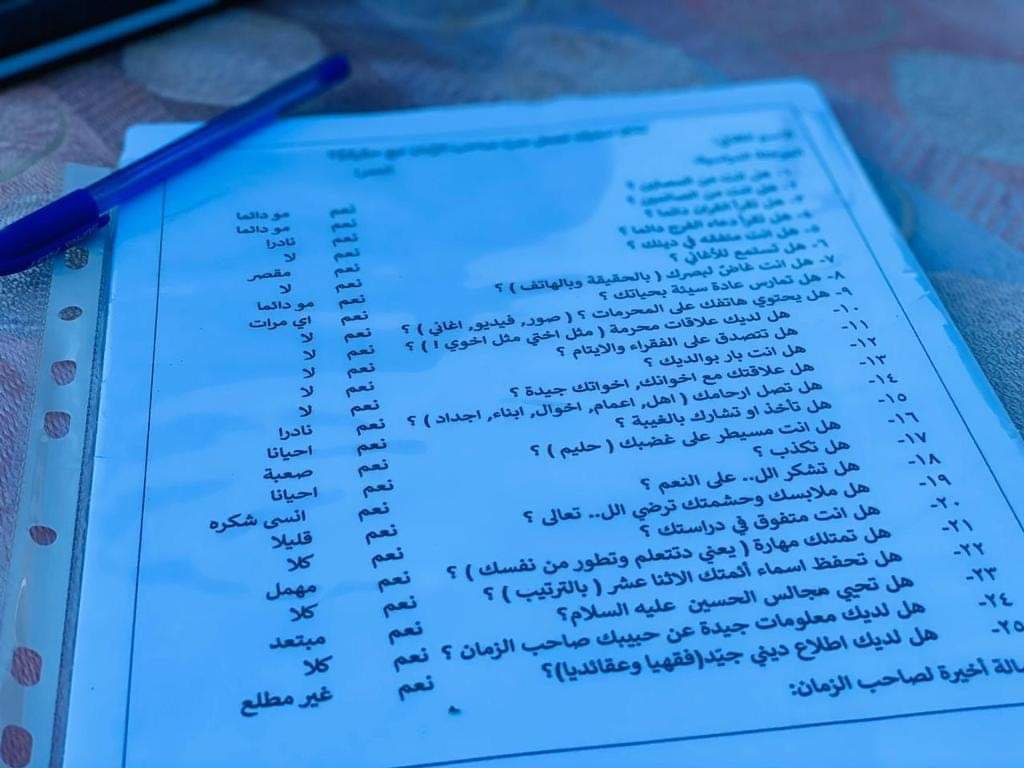 ١- هل انت من المصلين ؟ نعم مو دائما
٢- هل انت من الصائمين ؟ نعم مو دائما
٣- هل تقرأ القرآن دائما ؟ نعم نادرا
٤- هل تقرأ دعاء الفرج دائما ؟ نعم لا
٥- هل انت متفقه في دينك ؟ نعم مقصر
٦- هل تستمع للأغاني ؟ نعم لا
٧- هل انت غاضّ لبصرك ( بالحقيقة وبالهاتف ) ؟ نعم مو دائما
٨- هل تمارس عادة سيئة بحياتك ؟ نعم اي مرات
٩- هل يحتوي هاتفك على المحرمات ؟ ( صور, فيديو, اغاني ) ؟ نعم لا
١٠- هل لديك علاقات محرمة ( مثل اختي مثل اخوي ! ) ؟ نعم لا
١١- هل تتصدق على الفقراء والايتام ؟ نعم لا
١٢- هل انت بار بوالديك ؟ نعم لا
١٣- هل علاقتك مع اخوانك, اخواتك جيدة ؟ نعم نادرا
١٤- هل تصل ارحامك ( اهل, اعمام, اخوال, ابناء, اجداد ) ؟ نعم احيانا
١٥- هل تأخذ او تشارك بالغيبة ؟ نعم صعبة
١٦- هل انت مسيطر على غضبك ( حليم ) ؟ نعم احيانا
١٧- هل تكذب ؟ نعم انسى شكره
١٨- هل تشكر الل.. على النعم ؟ نعم قليلا
١٩- هل ملابسك وحشمتك ترضي الل.. تعالى ؟ نعم كلا
٢٠- هل انت متفوق في دراستك ؟ نعم مهمل
٢١- هل تمتلك مهارة ( يعني دتتعلم وتطور من نفسك ) ؟ نعم كلا
٢٢- هل تحفظ اسماء أئمتك الاثنا عشر ( بالترتيب ) ؟ نعم مبتعد
٢٣- هل تحيي مجالس الحسين عليه السلام؟ نعم كلا
٢٤- هل لديك معلومات جيدة عن حبيبك صاحب الزمان ؟ نعم غير مطلع
٢٥- هل لديك اطلاع ديني جيّد(فقهيا وعقائديا)؟
الة أخيرة لصاحب الزمان: